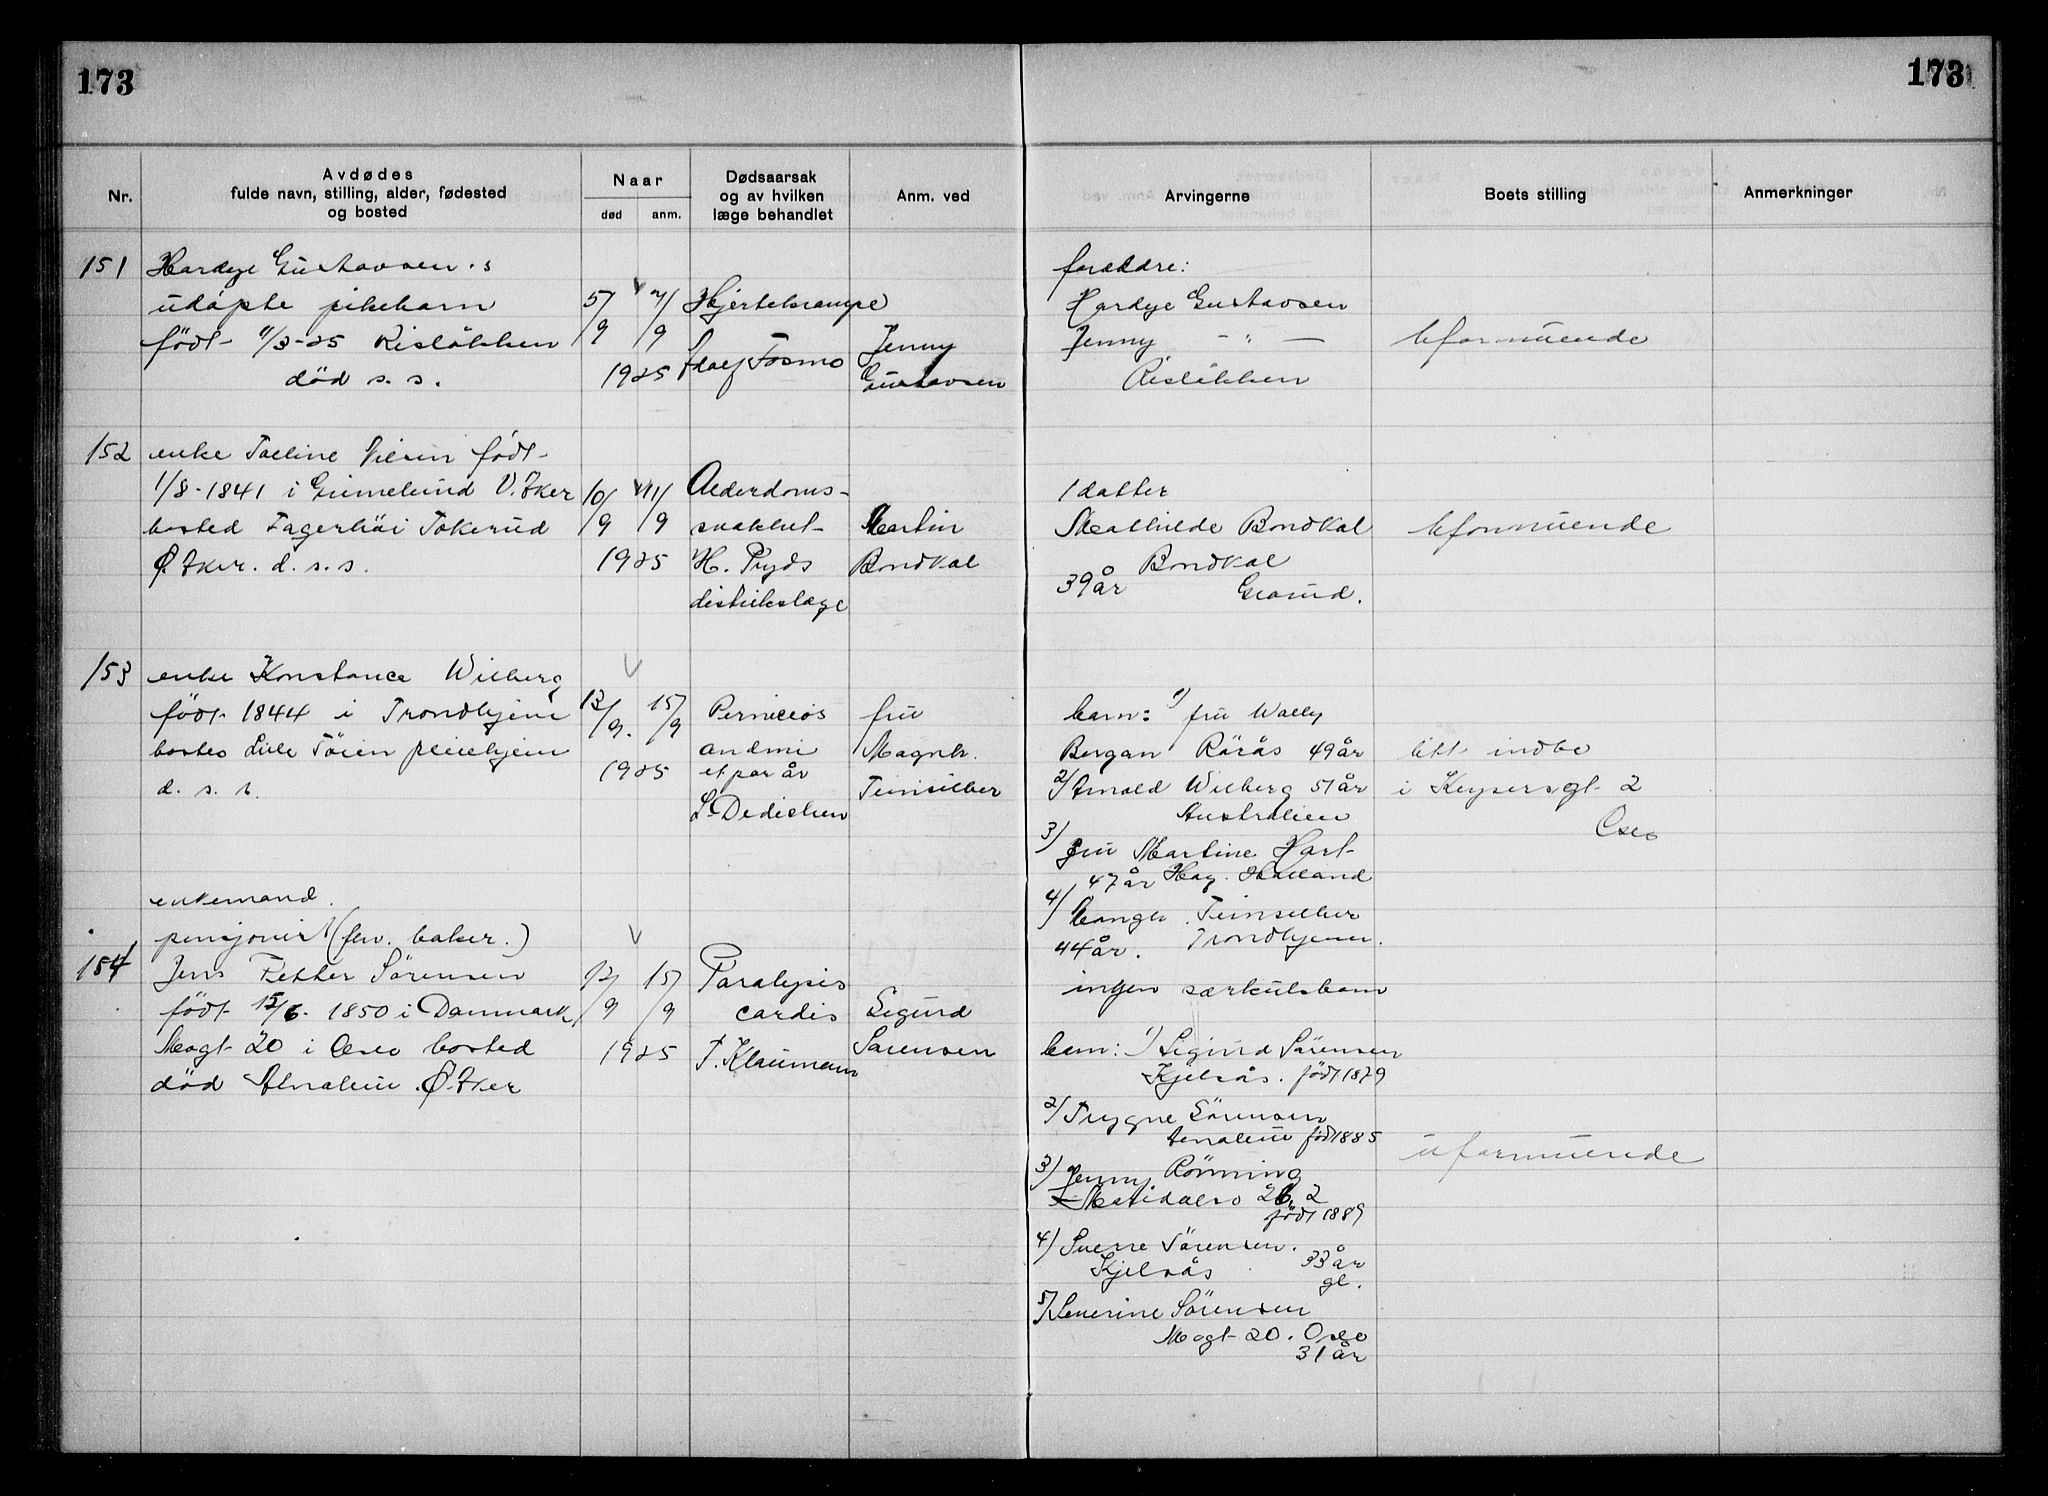 173
173
Nr.
Avdødes
fulde navn, stilling, alder, fødested
og bosted
Naar
død
anm.
Dødsaarsak
og av hvilken
læge behandlet
Anm. ved
Arvingerne
Boets stilling
Anmerkninger
151
Hardye Gustavsen.s
udöpte pikebarn
født 11/3-25 Risløkken
død s. s.
5/9 7/9
1925
Hjertekrampe
Adolf Fosmo
Jenny
Gustavsen
foreldre:
Hardye Gustavsen
Jenny - " -
Risløkken
Uformuende
152
enke født
1/8-1841 i Grimelund V. Aker
bosted Fagerhöi Tokerud
Ø. Aker. d. s. s.
10/9 11/9
1925
Alderdoms-
svakhet
H. Pryds
distriktslæge
Martin
Bondkal
1 datter
Mathilde Bondkal
Bondkal
39 år Grorud.
Uformuende
153
enke Konstance Wilberg
født 1844 i Trondhjem
bosted Lille Tøien pleiehjem
d. s. s.
13/9. 15/9
1925
Perniciös
anæmi
et par år
Dedichen
fru
Magnh.
barn: 1) fru Wally
Bergan Rörås 49 år
2) Arnold Wilberg 51 år
Australien
3)
fru Martine Hart
47 år Hag. Holland
4)
44 år. Trondhjem.
ingen særkulsbarn
litt indbo
i Keysersgt 2
Oslo
enkemand.
pensjonist (fhv. baker.)
154
Jens Petter Sörensen
født 15/6. 1850 i Danmark
Mogt 20 i Oslo bosted
død Alnabru. Ø. Aker
12/9 15/9
1925
Paralysis
cardis
T. Klaumann
Sigurd
Sørensen
barn: 1) Sigurd Sörensen
Kjelsås. født 1879
2) Trygve Sörensen
Alnabru født 1885
3) Jenny Rönning
2
født 1889
4) Sverre Sörensen.
Kjelsås 33 år
gl.
5) Severine Sörensen
Mogt 20. Oslo
31 år
uformuende